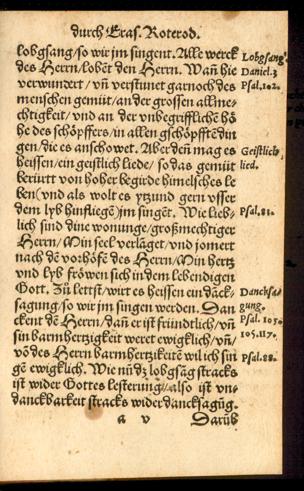 durch Eras. Roterod.
lobgsang/so wir jm singent. Alle werck
des Herrn/lobēt den Herrn. Wañ hie
verwundert/vñ verstunet gar noch des
menschen gemüt/an der grossen allme-
chtigkeit/vnd an der vnbegrifflichē hö
he des schöpffers/in allen gschöpfftē din
gen/die es anschowet. Aber deñ mag es
heissen/ein geistlich liede/so das gemüt
berürt von hoher begirde himelsches le
ben(vnd als wolt es ytzund gern vsser
dem lyb hinfliegē)jm singēt. Wie lieb-
lich sind dine wonunge/großmechtiger
Herrn/Min seel verlāget/vnd jomert
nach dē vorhöfē des Herrn/Min hertz
vnd lyb fröwen sich in dem lebendigen
Gott. Zū lettst/wirt es heissen ein dāck-
sagung/so wir jm singen werden. Dan
ckent dē Herrn/dañ er ist früntlich/vñ
sin barmhertzigkeit weret ewigklich/vñ/
vō des Herrn barmhertzikeitē wil ich sin
gē ewigklich. Wie nū dz lobgsāg stracks
ist wider Gottes lesterung/also ist vn-
danckbarkeit stracks wider dancksagūg.
a v Darūb
Lobgsang
Daniel.3
Psal.102.
Geistlich
lied.
Psal.81.
Dancksa-
gung.
Psal. 105.
105.117.
Psal.88.